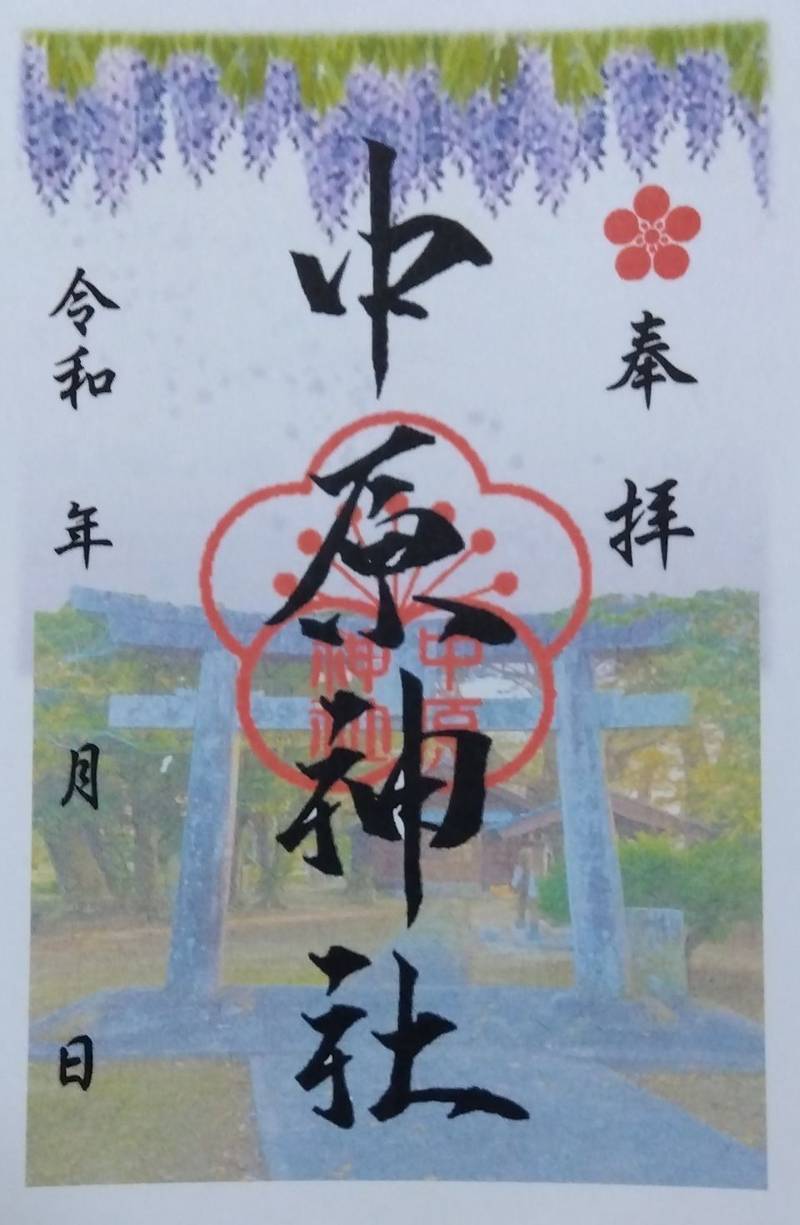 奉拝
中原神社
中原
神社
令和 年 月 日